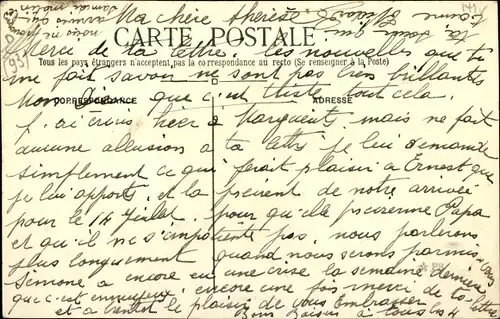 Ma chère Thérèse
CARTE POSTALE
Merci de ta lettre. les nouvelles que tu
Tous les pays étrangers n'acceptent pas la correspondance au recto (Se renseigner à la Poste)
me fait savoir ne sont pas bien brillantes
Mon Dieu que c'est triste tout cela.
CORRESPONDANCE ADRESSE
J'ai écrit hier à Marguerite, mais ne fait
aucune allusion à ta lettre je lui demande
simplement ce qui ferait plaisir à Ernest que
je lui apporte, et la previent de notre arrivée
pour le 14 Juillet. pour qu'elle previenne Papa
et qu'il ne s'impatiente pas. nous parlerons
plus longuement quand nous serons parmi
Simone a encore eu une crise la semaine dernière
que c'est ennuyeux. encore une fois merci de ta lettre
et à bientôt le plaisir de vous Embrasser
Bons Baisers à tous les 4